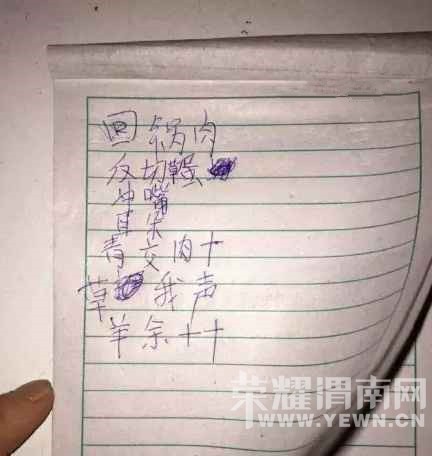 回锅肉
反切
嘴
耳
青交肉十
草我声
羊余十十
荣耀渭南网
WWW.YEWN.CN